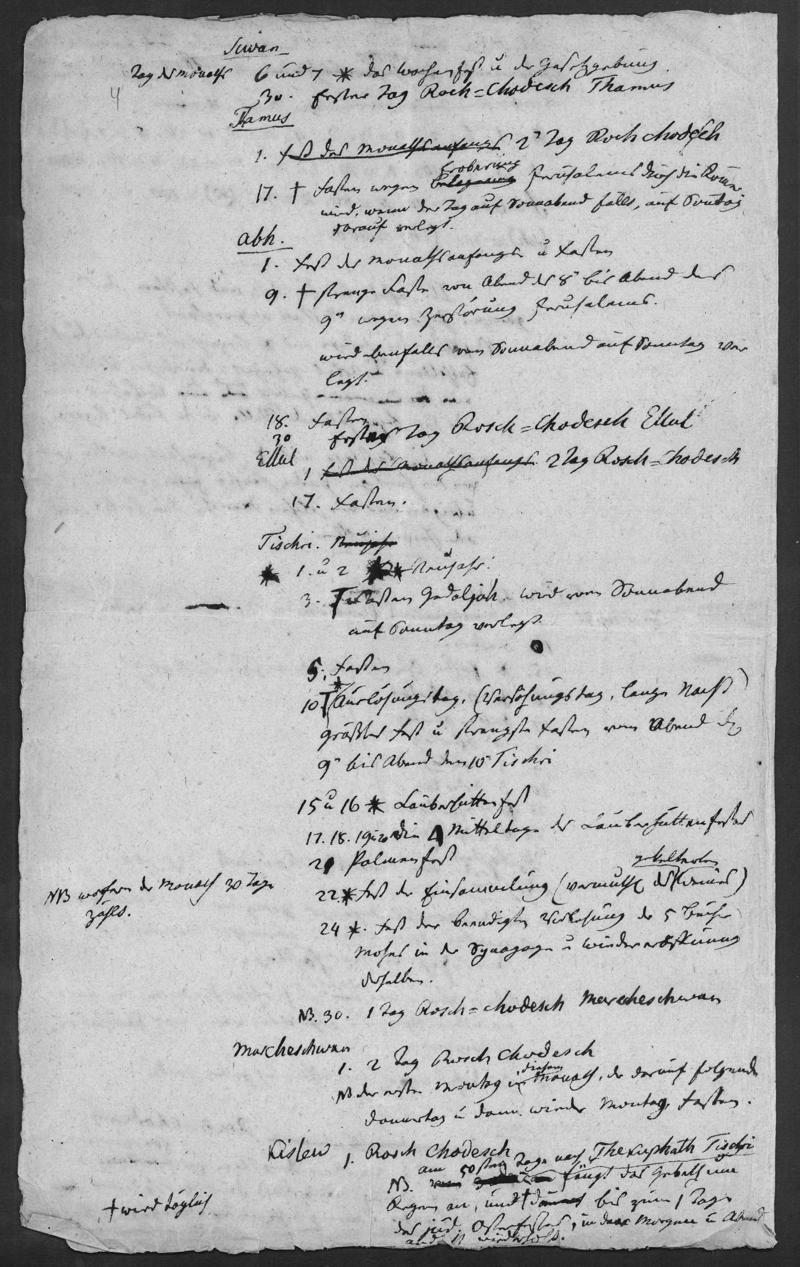 Siwan
Tag des Monaths 6 und 7 * das Wochenfest u der Gesetzgebung
4
30. Erster Tag Rosch=Chodesch Thamus
Thamus
1. Fest des Monathsanfangs 2r Tag Rosch chodesch
Eroberung
17. † Fasten wegen Belagerung Jerusalems durch die Römer
wird, wenn der Tag auf Sonnabend fällt, auf Sontag
darauf verlegt.
Abh.
1. Fest des Monathsanfangs u Fasten
9. † strenge Faste von Abend des 8n bis Abend des
9n wegen Zerstörung Jerusalems.
wird ebenfalls von Sonnabend auf Sonntag ver
legt.
18. Fasten
30 Erster Tag Rosch=Chodesch Ellul
Ellul
1 Fest des Monathsanfangs 2 Tag Rosch=Chodesch
17. Fasten.
Tischri. Neujahr
* 1. u 2 Neujahr.
3. † Fasten Gedaljah. wird vom Sonnabend
auf Sonntag verlegt.
5. Fasten
10 † * Auslösungstag, (Versöhnungstag, lange Nacht)
größtes Fest u strengste Fasten vom Abend des
9n bis Abend den 10 Tischri
15 u 16 * Lauberhüttenfest
17. 18. 19 u 20 die 4 Mitteltage des Lauberhüttenfestes
21 Palmenfest
NB wofern der Monath 30 Tage
zählt.
22. * Fest der Einsammlung (vermuthl. des)
24 *. Fest der beendigten Verlesung der 5 Bücher
Moses in der Synagoge u wiedereröffnung
derselben.
NB. 30. 1 Tag Rosch=chodesch Marcheschwan
Marcheschwan
1. 2 Tag Rosch Chodesch
NB der erste Montag in diesem Monath, der darauf folgende
Donnerstag u dann wieder Montag, Fasten.
Kislew 1. Rosch Chodesch
NB. am 50sten Tage nach Thekuphath Tischri
fängt das Gebeth um
Regen an, und † bis zum 1 Tage
† wird täglich
des jüd. Osterfestes, in der Morgen u Abend
wiederholt.